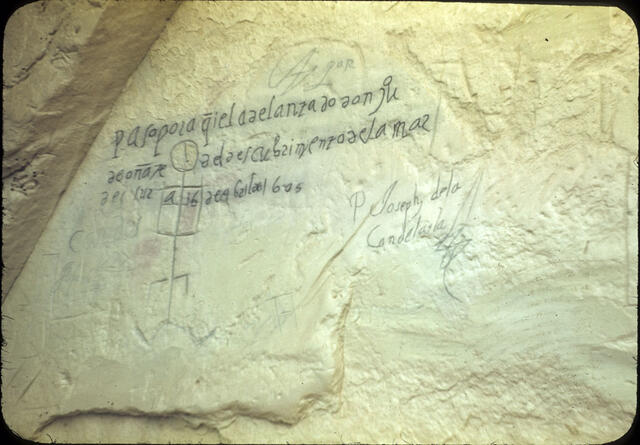 paso por aq̃i el adelantado don juº
de oñate del descubrimyento de la mar
del sur a 16 de abril del 1605
P Joseph de la
Candelaria